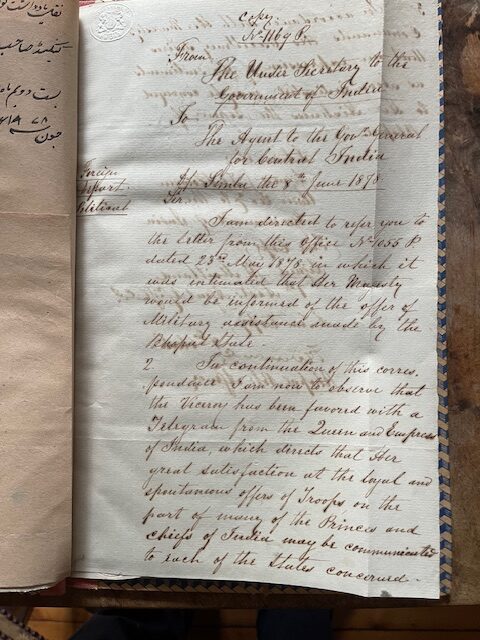 نقل یادداشت
صاحب
بست و دویم ماه
جون ۷۸
Copy.
No. 1169 P.
From
The Under Secretary to the
Government of India
To
The Agent to the Govr. General
for Central India
Foreign
Depart
Political
Dj Simla the 8th June 1878
Sir
I am directed to refer you to
the letter from this Office No. 1055 P
dated 23rd May 1878 in which it
was intimated that Her Majesty
would be informed of the offer of
Military assistance made by the
State.
2. In continuation of this corres.
pondence I am now to observe that
the Viceroy has been favored with a
Telegram from the Queen and Empress
of India which directs that Her
great satisfaction at the loyal and
spontanious offers of Troops on the
part of many of the Princes and
chiefs of India may be communicated
to each of the States concerned.